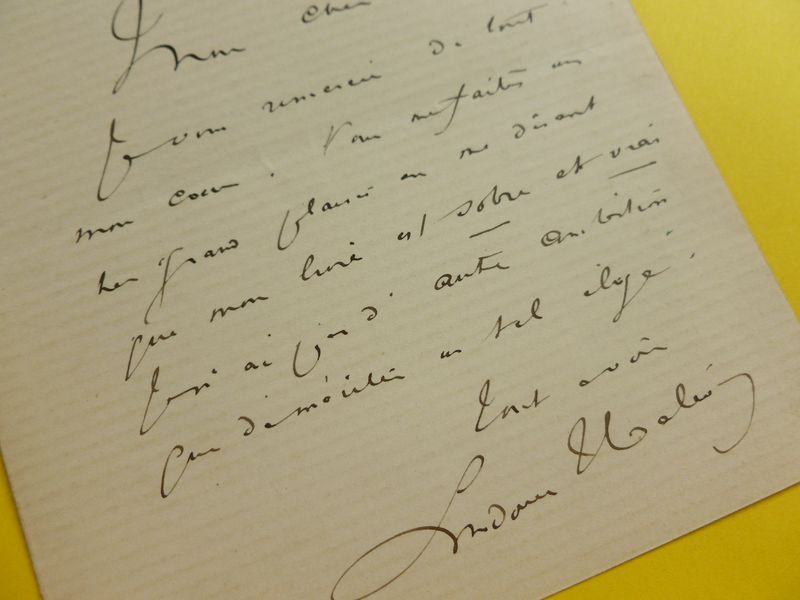 Mon cher
Je vous remercie de tout
mon coeur. Vous me faites un
bien grand plaisir en me disant
que mon livre est sobre et vrai
Je n'ai pas d'autre ambition
que de mériter un tel éloge.
Tout à vous
Ludovic Halévy